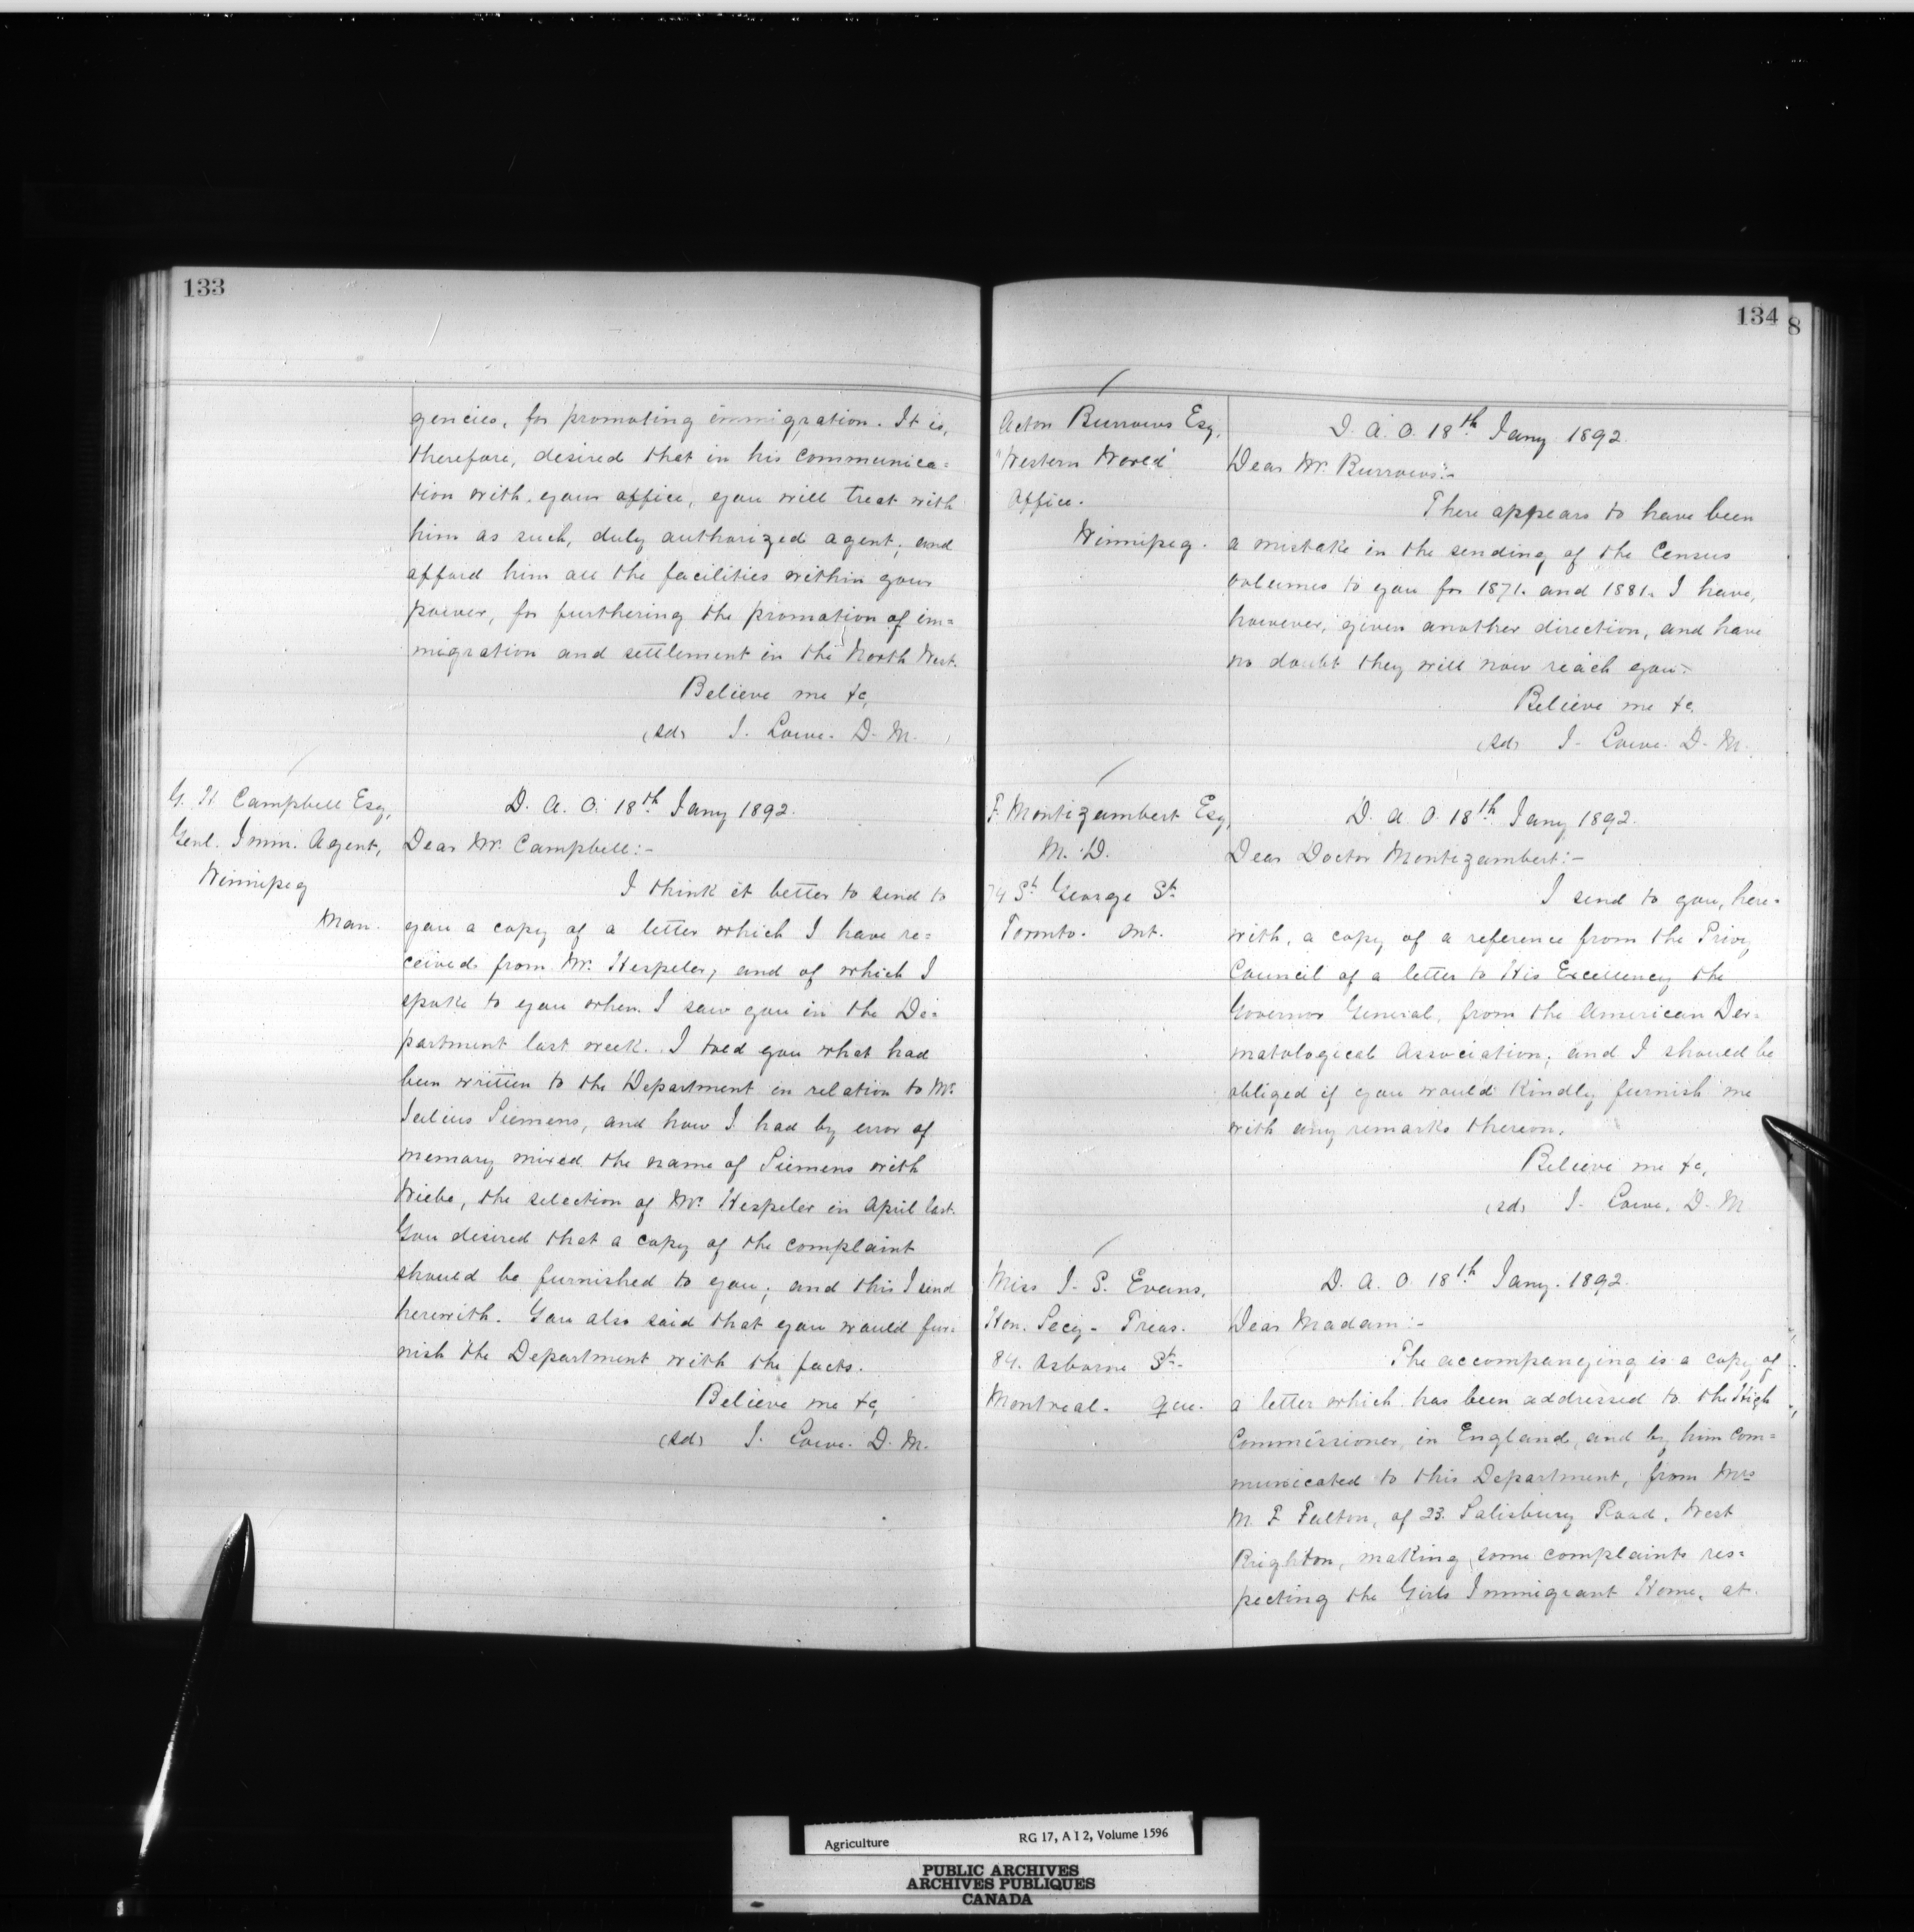 133
gencies, for promoting immigration. It is,
therefore, desired that in his communica=
tion with your office, you will treat with
him as such, duly authorized agent; and
afford him all the facilities within your
power, for furthering the promotion of im=
migration and settlement in the North West.
Believe me &c,
(sd) J. Lowe. D. M.
G. H. Campbell Esq,
Genl. Imm. Agent,
Winnipeg
Man.
D. A. O. 18th Jany 1892.
Dear Mr. Campbell:-
I think it better to send to
you a copy of a letter which I have re=
ceived from Mr. Hespeler, and of which I
spoke to you when I saw you in the De=
partment last week. I told you what had
been written to the Department in relation to Mr.
Julius Siemens, and how I had by error of
memory mixed the name of Siemens with
Wiebe, the selection of Mr. Hespeler in April last.
You desired that a copy of the complaint
should be furnished to you; and this I send
herewith. You also said that you would fur=
nish the Department with the facts.
Believe me &c,
(sd) J. Lowe. D. M.
134
8
Acton Burrows Esq,
"Western World"
Office.
Winnipeg.
D. A. O. 18th Jany 1892.
Dear Mr. Burrows:-
There appears to have been
a mistake in the sending of the Census
volumes to you for 1871. and 1881. I have,
however, given another direction, and have
no doubt they will now reach you.-
Believe me &c,
(sd) J. Lowe. D. M.
F. Montizambert Esq,
M. D.
74 St. George St.
Toronto. Ont.
D. A. O. 18th Jany 1892.
Dear Doctor Montizambert:-
I send to you, here=
with, a copy of a reference from the Privy
Council of a letter to His Excellency the
Governor General, from the American Der=
matological Association; and I should be
obliged if you would kindly furnish me
with any remarks thereon.
Believe me &c,
(sd) J. Lowe. D. M
Miss J. S. Evans,
Hon. Secy- Treas.
84. Osborne St-
Montreal. Que.
D. A. O. 18th Jany. 1892.
Dear Madam:-
The accompanying is a copy of
a letter which has been addressed to the High
Commissioner, in England, and by him com=
municated to this Department, from Mrs
M. F. Fulton, of 23. Salisbury Road, West
Brighton, making some complaints res=
pecting the Girls Immigrant Home, at
Agriculture RG 17, A I 2, Volume 1596
PUBLIC ARCHIVES
ARCHIVES PUBLIQUES
CANADA